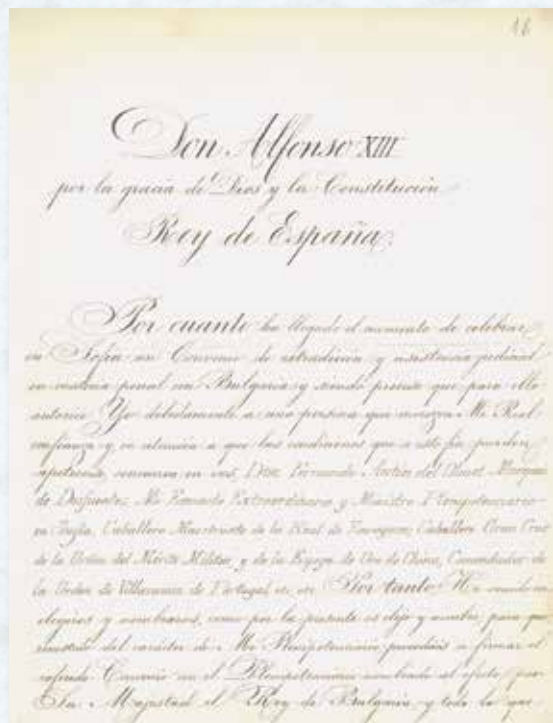 16
Don Alfonso XIII
por la gracia de Dios y la Constitución
Rey de España.
Por cuanto ha llegado el momento de celebrar
en Sofía un Convenio de extradicion y asistencia judicial
en materia penal con Bulgaria y siendo preciso que para ello
autorice Yo debidamente a una persona que merezca Mi Real
confianza y en atención a que las condiciones que a este fin pueden
apetecerse, concurren en vos, Don Fernando del Marques
de Mi Enviado Extraordinario y Ministro Plenipotenciario
en Sofía, Caballero Maestrante de la Real de Zaragoza, Caballero Gran Cruz
de la Orden del Mérito Militar y de la Espiga de Oro de China, Comendador de
la Orden de Villaviciosa de Portugal Por tanto He venido en
elegiros y nombraros, como por la presente os elijo y nombro, para que
revestido del carácter de Mi Plenipotenciario procedáis a firmar el
referido Convenio con el Plenipotenciario nombrado al efecto por
Su Majestad el Rey de Bulgaria, y todo lo que